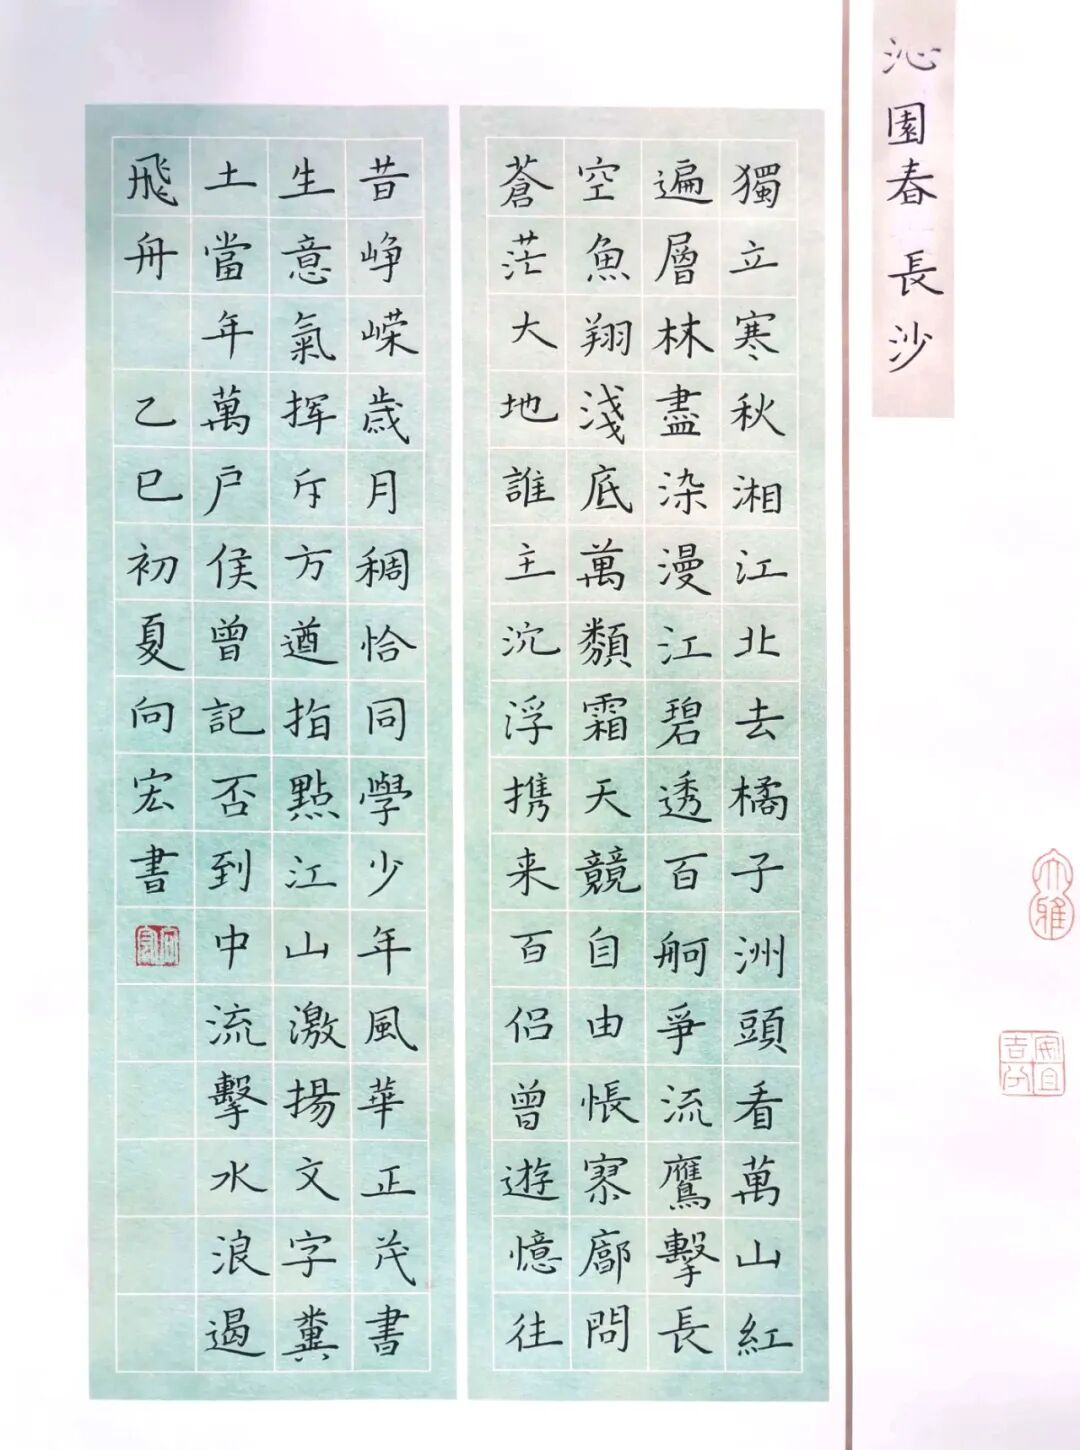 沁園春 長沙
獨立寒秋湘江北去橘子洲頭看萬山紅
遍層林盡染漫江碧透百舸爭流鷹擊長
空魚翔淺底萬類霜天競自由悵寥廓問
蒼茫大地誰主沉浮携来百侣曾遊憶往
昔峥嵘歲月稠恰同學少年風華正茂書
生意氣挥斥方遒指點江山激揚文字糞
土當年萬户侯曾記否到中流擊水浪遏
飛舟 乙巳初夏向宏書
向宏
大雅
安且吉兮